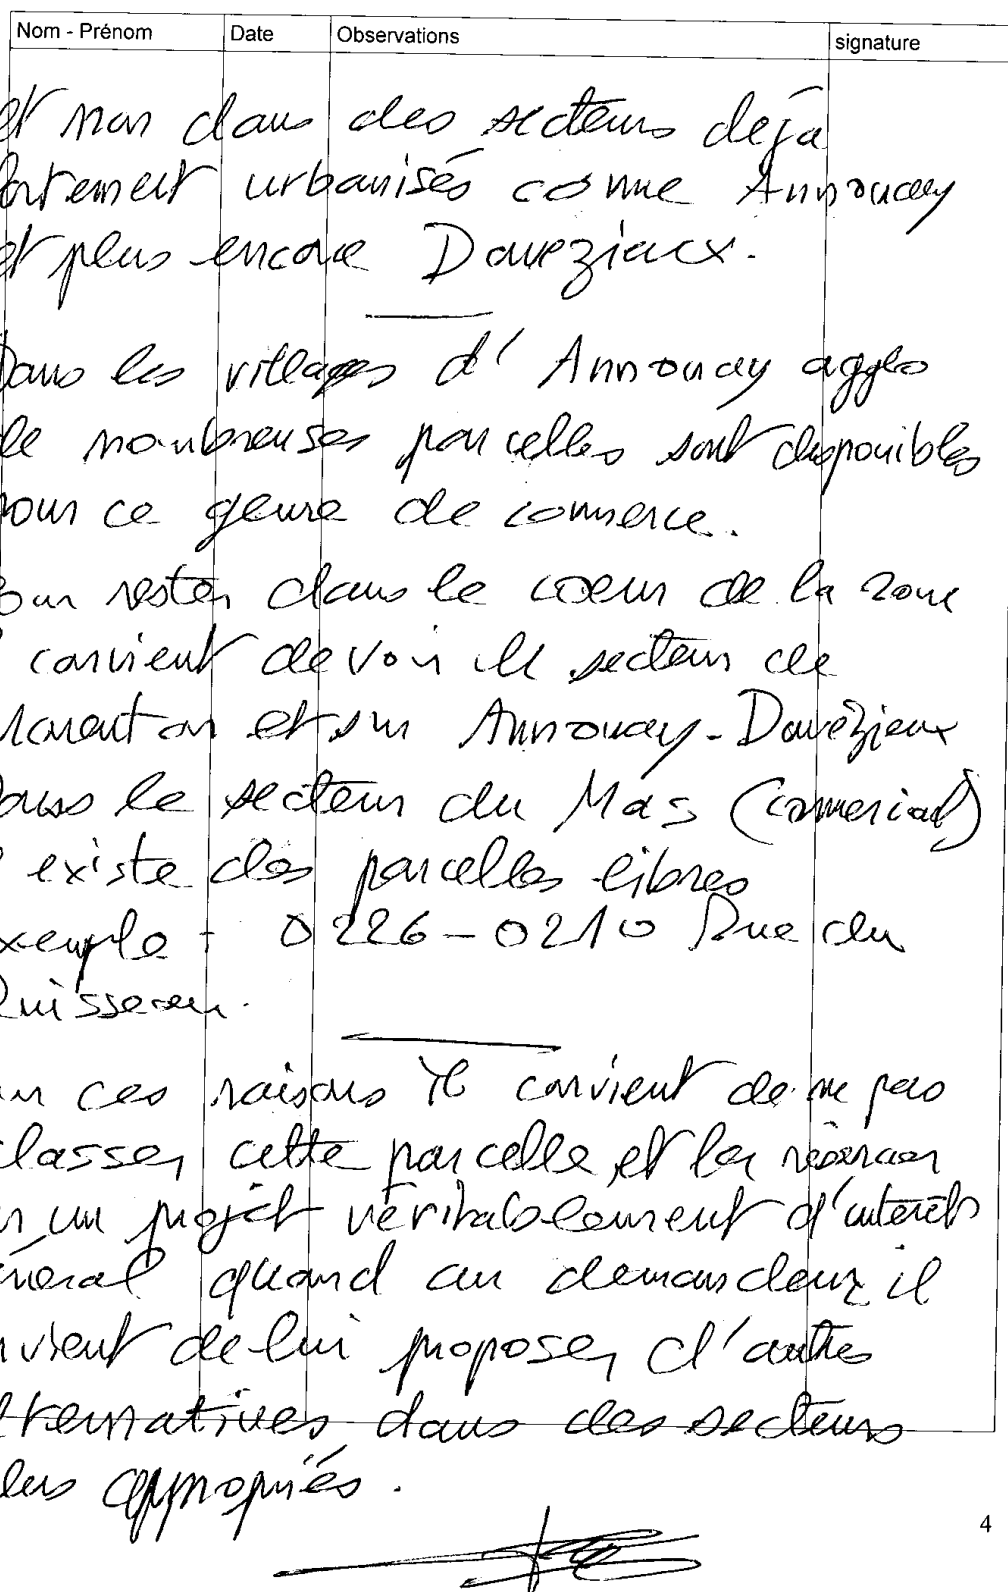 Nom - Prénom Date Observations signature
et non dans des secteurs déjà
fortement urbanisés comme Annonay
et plus encore Davezieux.
Dans les villages d'Annonay agglo
de nombreuses parcelles sont disponibles
pour ce genre de commerce.
our rester dans le coeur de la zone
convient de voir le secteur de
et sur Annonay-Davézieux
Dans le secteur du Mas (comercial)
existe des parcelles libres
xemple : 0226-0210 Rue du
Ruisseau.
ur ces raisons il convient de ne pas
classer cette parcelle et la réserver
un projet véritablement d'intérêt
néral quand au demandeur il
nvient de lui proposer d'autres
lternatives dans des secteurs
lus appropriés.
4